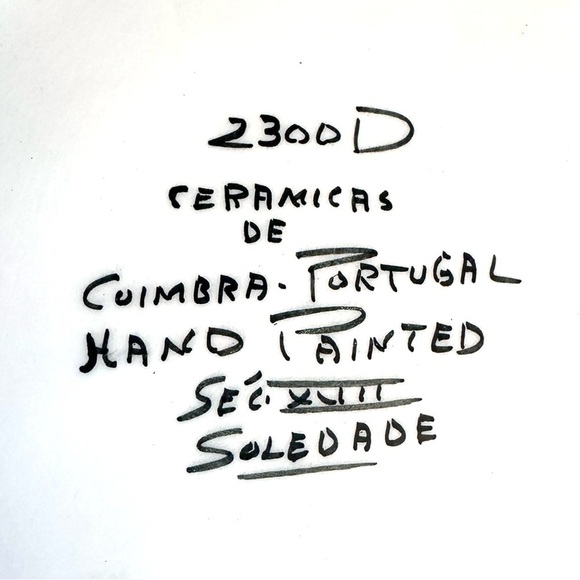 2300D
CERAMICAS
DE
COIMBRA-PORTUGAL
HAND PAINTED
SÉC. XVIII
SOLEDADE